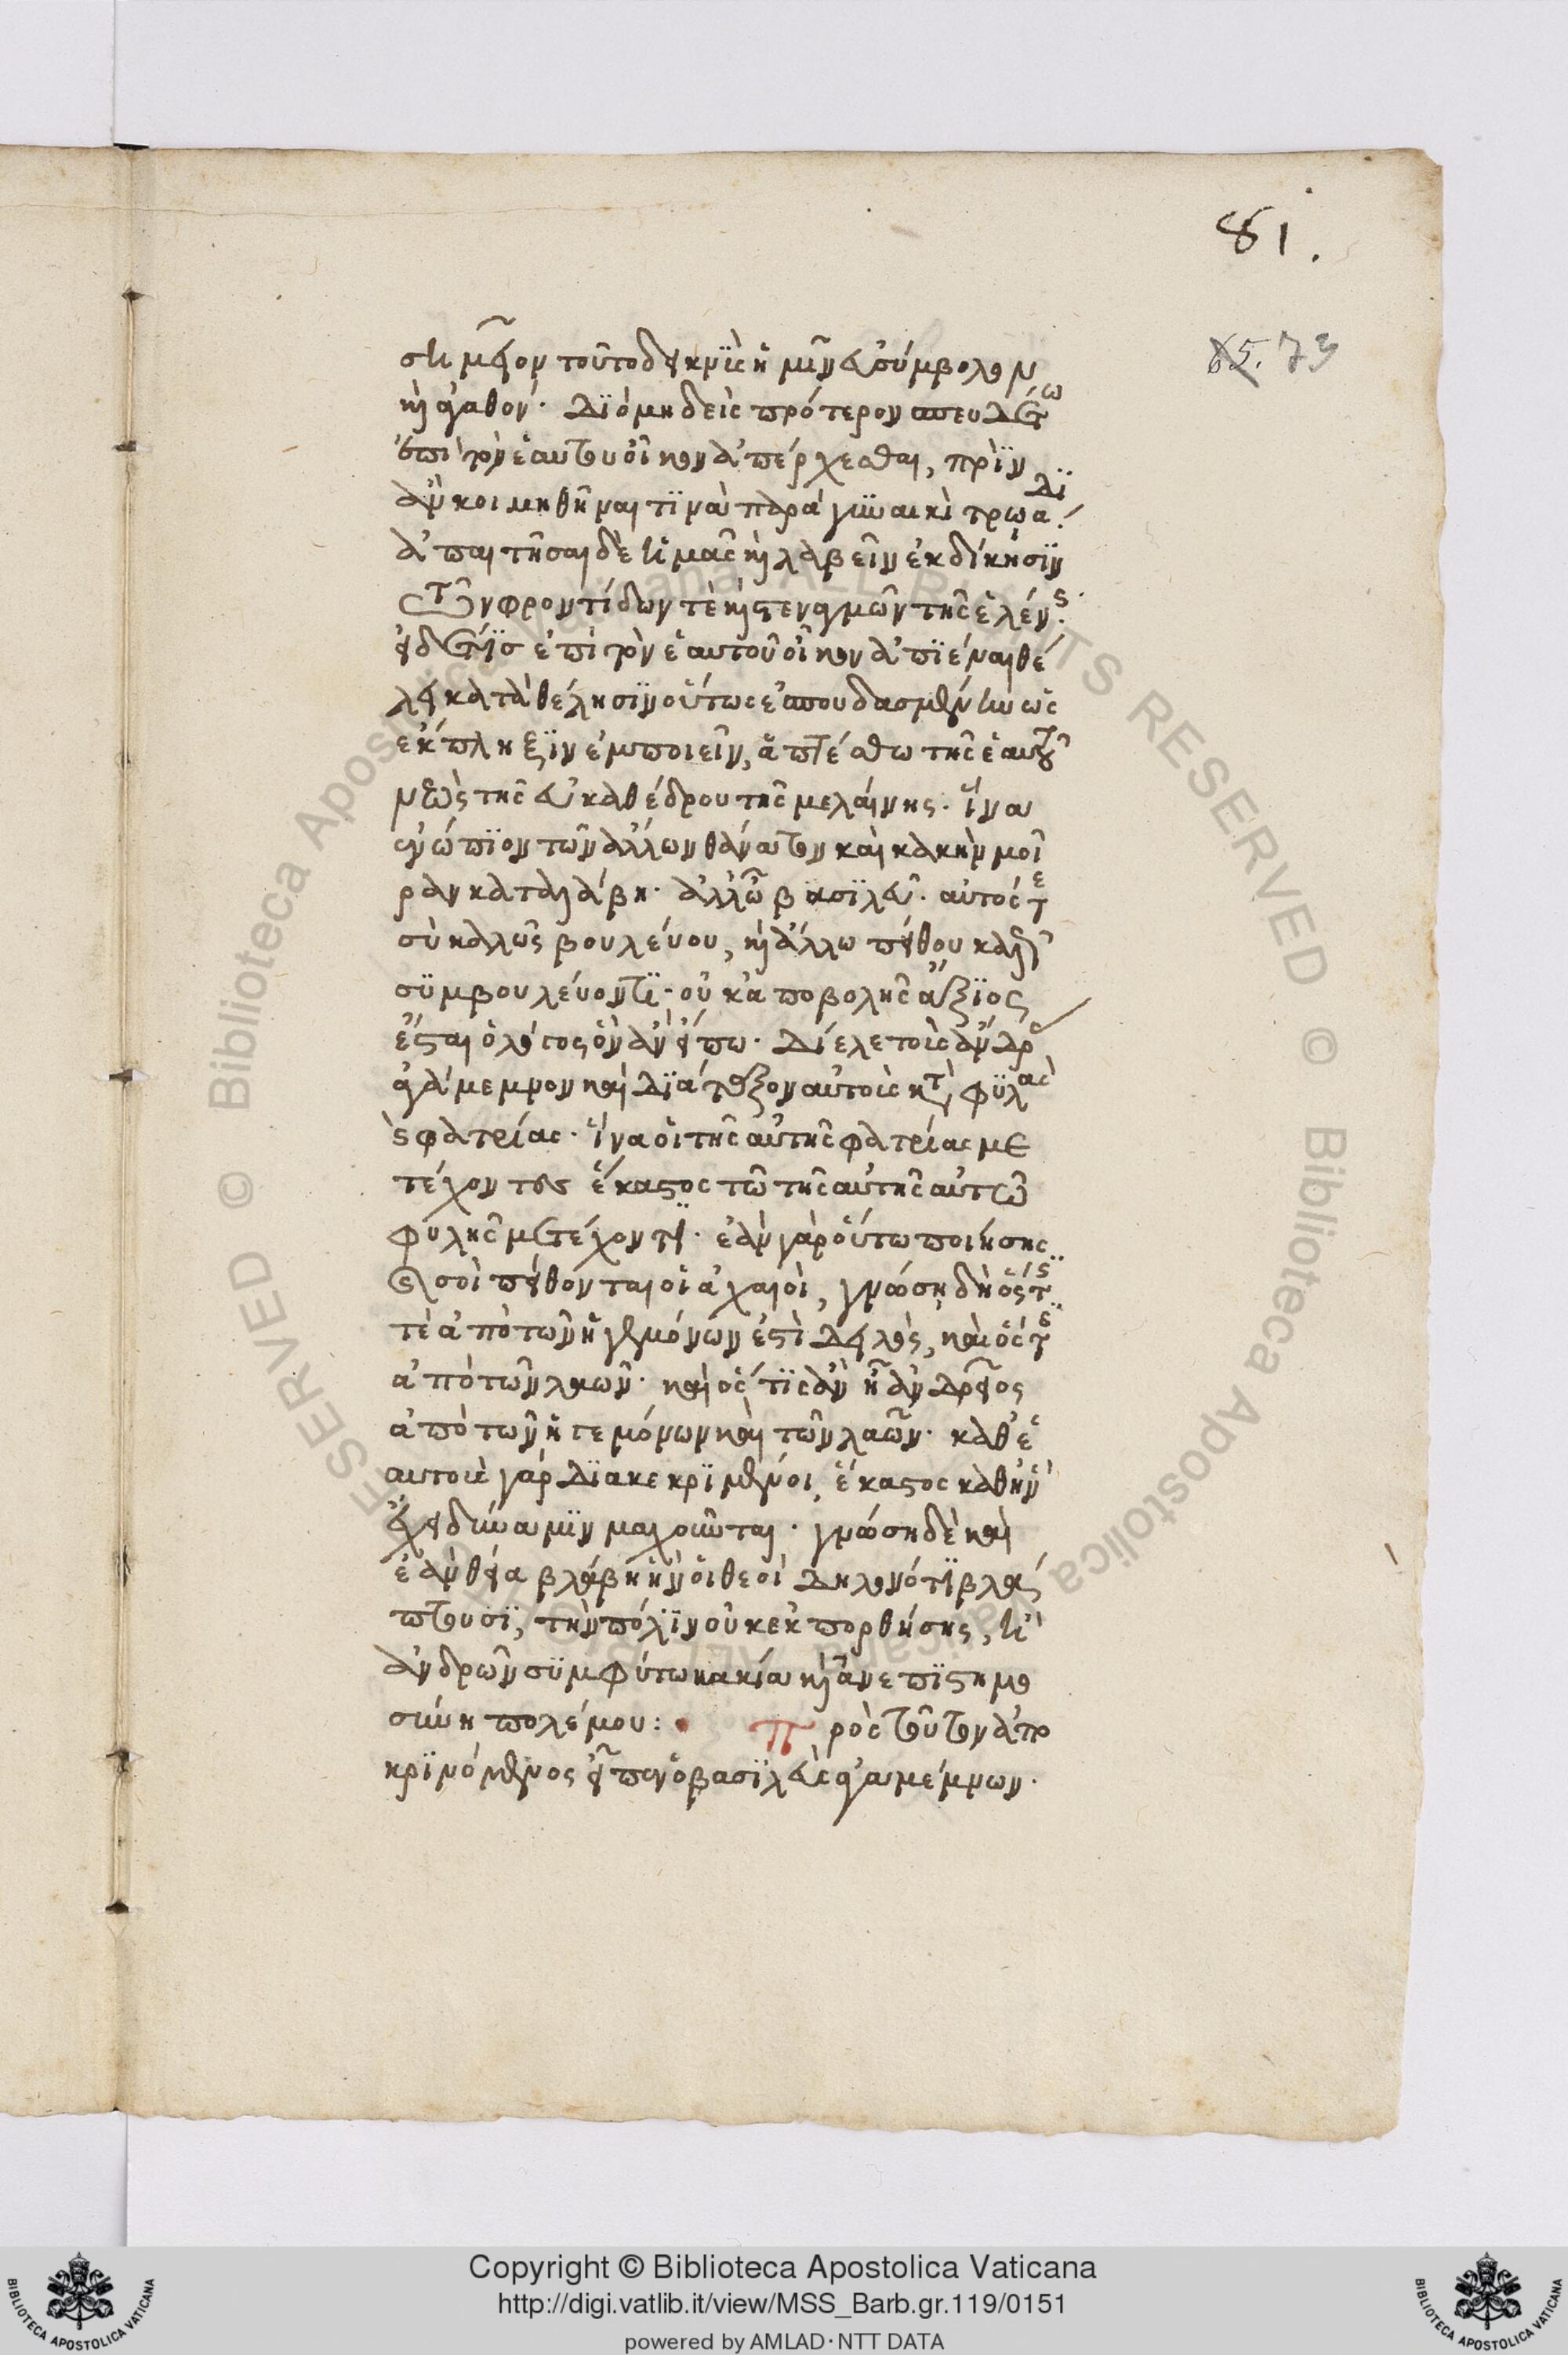 81.
85. 73
σημεῖον τοῦτο δεικνὺς ἡμῖν εὐσύμβολον
καὶ ἀγαθόν· διὸ μηδεὶς πρότερον σπευδέτω
ἐπὶ τὸν ἑαυτοῦ οἶκον ἀπέρχεσθαι, πρὶν
ἂν κοιμηθῆναι τινὰ παρὰ γυναικὶ τρωάδι.
ἀπαιτῆσαι δὲ ἡμᾶς καὶ λαβεῖν ἐκδίκησιν
τῶν φροντίδων τὲ καὶ στεναγμῶν τῆς ἑλένης·
εἰ δέ τις ἐπὶ τὸν ἑαυτοῦ οἶκον ἀπιέναι θέ
λει κατὰ θέλησιν οὕτως ἐσπουδασμένην ὡς
ἔκπληξιν ἐμποιεῖν, ἁπτέσθω τῆς ἑαυτοῦ
νεὼς τῆς εὐκαθέδρου τῆς μελαίνης. ἵνα
ἐνώπιον τῶν ἄλλων θάνατον καὶ κακὴν μοῖ
ραν καταλάβη· ἀλλ' ὦ βασιλεῦ· αὐτός τε
σὺ καλῶς βουλεύου, καὶ ἄλλω πείθου καλῶς
συμβουλεύοντι· οὐκ ἀποβολῆς ἄξιος
ἔσται ὁ λόγος ὃν ἂν εἴπω· δίελε τοὺς ἄνδρας
ἀγάμεμνον καὶ διάταξον αὐτοὺς κατὰ φυλὰς
καὶ φατρίας· ἵνα οἱ τῆς αὐτῆς φατρίας με
τέχοντες ἕκαστος τῶ τῆς αὐτῆς αὐτῶ
φυλῆς μετέχοντι· ἐὰν γὰρ οὕτω ποιήσης
καὶ σοὶ πείθονται οἱ ἀχαιοὶ, γνώση δὴ ὅστις
τὲ ἀπὸ τῶν ἡγεμόνων ἐστὶ δειλὸς, καὶ ὅστις
ἀπὸ τῶν λαῶν· καὶ ὅστις ἂν ἦ ἀνδρεῖος
ἀπὸ τῶν ἡγεμόνων καὶ τῶν λαῶν· καθ' ἑ
αυτοὺς γὰρ διακεκριμένοι, ἕκαστος καθ' ἣν
ἔχει δύναμιν μαχοῦνται· γνώση δὲ καὶ
ἐὰν θεία βλάβη ἣν οἱ θεοὶ δηλονότι βλά
πτουσι, τὴν πόλιν οὐκ ἐκπορθήσης, ἢ
ἀνδρῶν συμφύτω κακία καὶ ἀνεπιστημο
σύνη πολέμου: Πρὸς τοῦτον ἀπο
κρινόμενος εἶπεν ὁ βασιλεὺς ἀγαμέμνων·
Copyright © Biblioteca Apostolica Vaticana
http://digi.vatlib.it/view/MSS_Barb.gr.119/0151
powered by AMLAD·NTT DATA